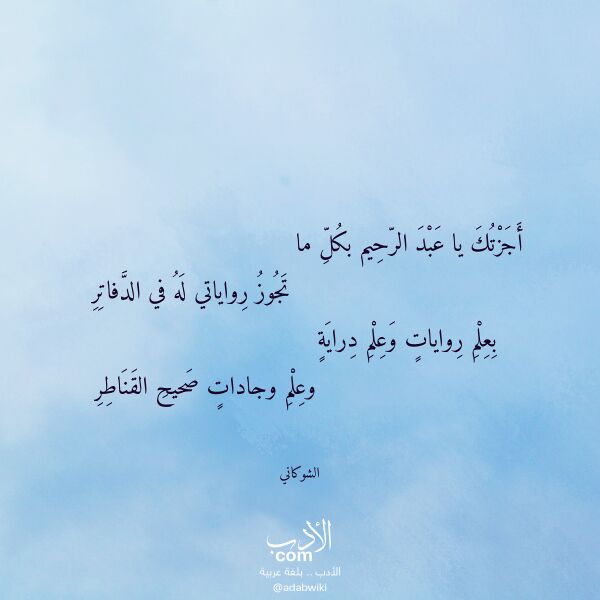 أَجَزْتُكَ يا عَبْدَ الرّحِيم بكُلِّ ما
تَجُوزُ رِواياتي لَهُ في الدَّفاتِرِ
بِعِلْمِ رِواياتٍ وَعِلْمِ دِرايَةٍ
وعِلْمِ وجاداتٍ صَحيحِ القَنَاطِرِ
الشوكاني
الأدب
com
الأدب .. بلغة عربية
@adabwiki